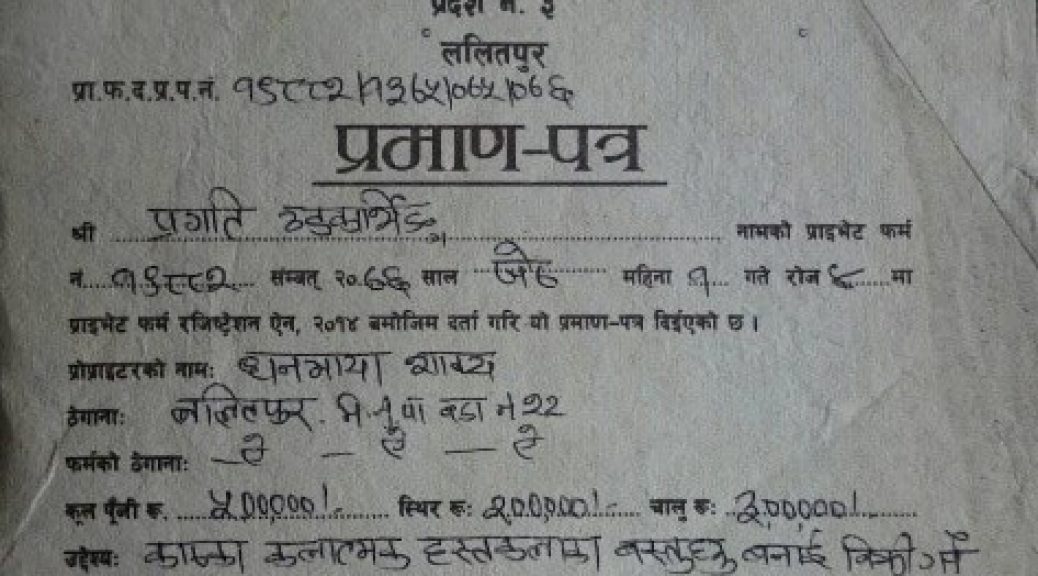 प्रदेश नं. ३
ललितपुर
प्रा.फ.द.प्र.प.नं. १९८८२/१३६५/०६५/०६६
प्रमाण-पत्र
श्री प्रगति उडक्राफ्ट नामको प्राइभेट फर्म
नं. १९८८२ सम्बत् २०६६ साल जेष्ठ महिना १ गते रोज ६ मा
प्राइभेट फर्म रजिष्ट्रेशन ऐन, २०१४ बमोजिम दर्ता गरि यो प्रमाण-पत्र दिईएको छ ।
प्रोप्राइटरको नाम: धनमाया शाक्य
ठेगाना: ललितपुर वडा नं २२
फर्मको ठेगाना: — ऐ — ऐ — ऐ
कूल पूँजी रू. ५००००० /- स्थिर रू: २००००० /- चालु रू: ३००००० /-
उद्देश्य: काष्ठका कलात्मक हस्तकलाका वस्तुहरु बनाई बिक्री गर्ने